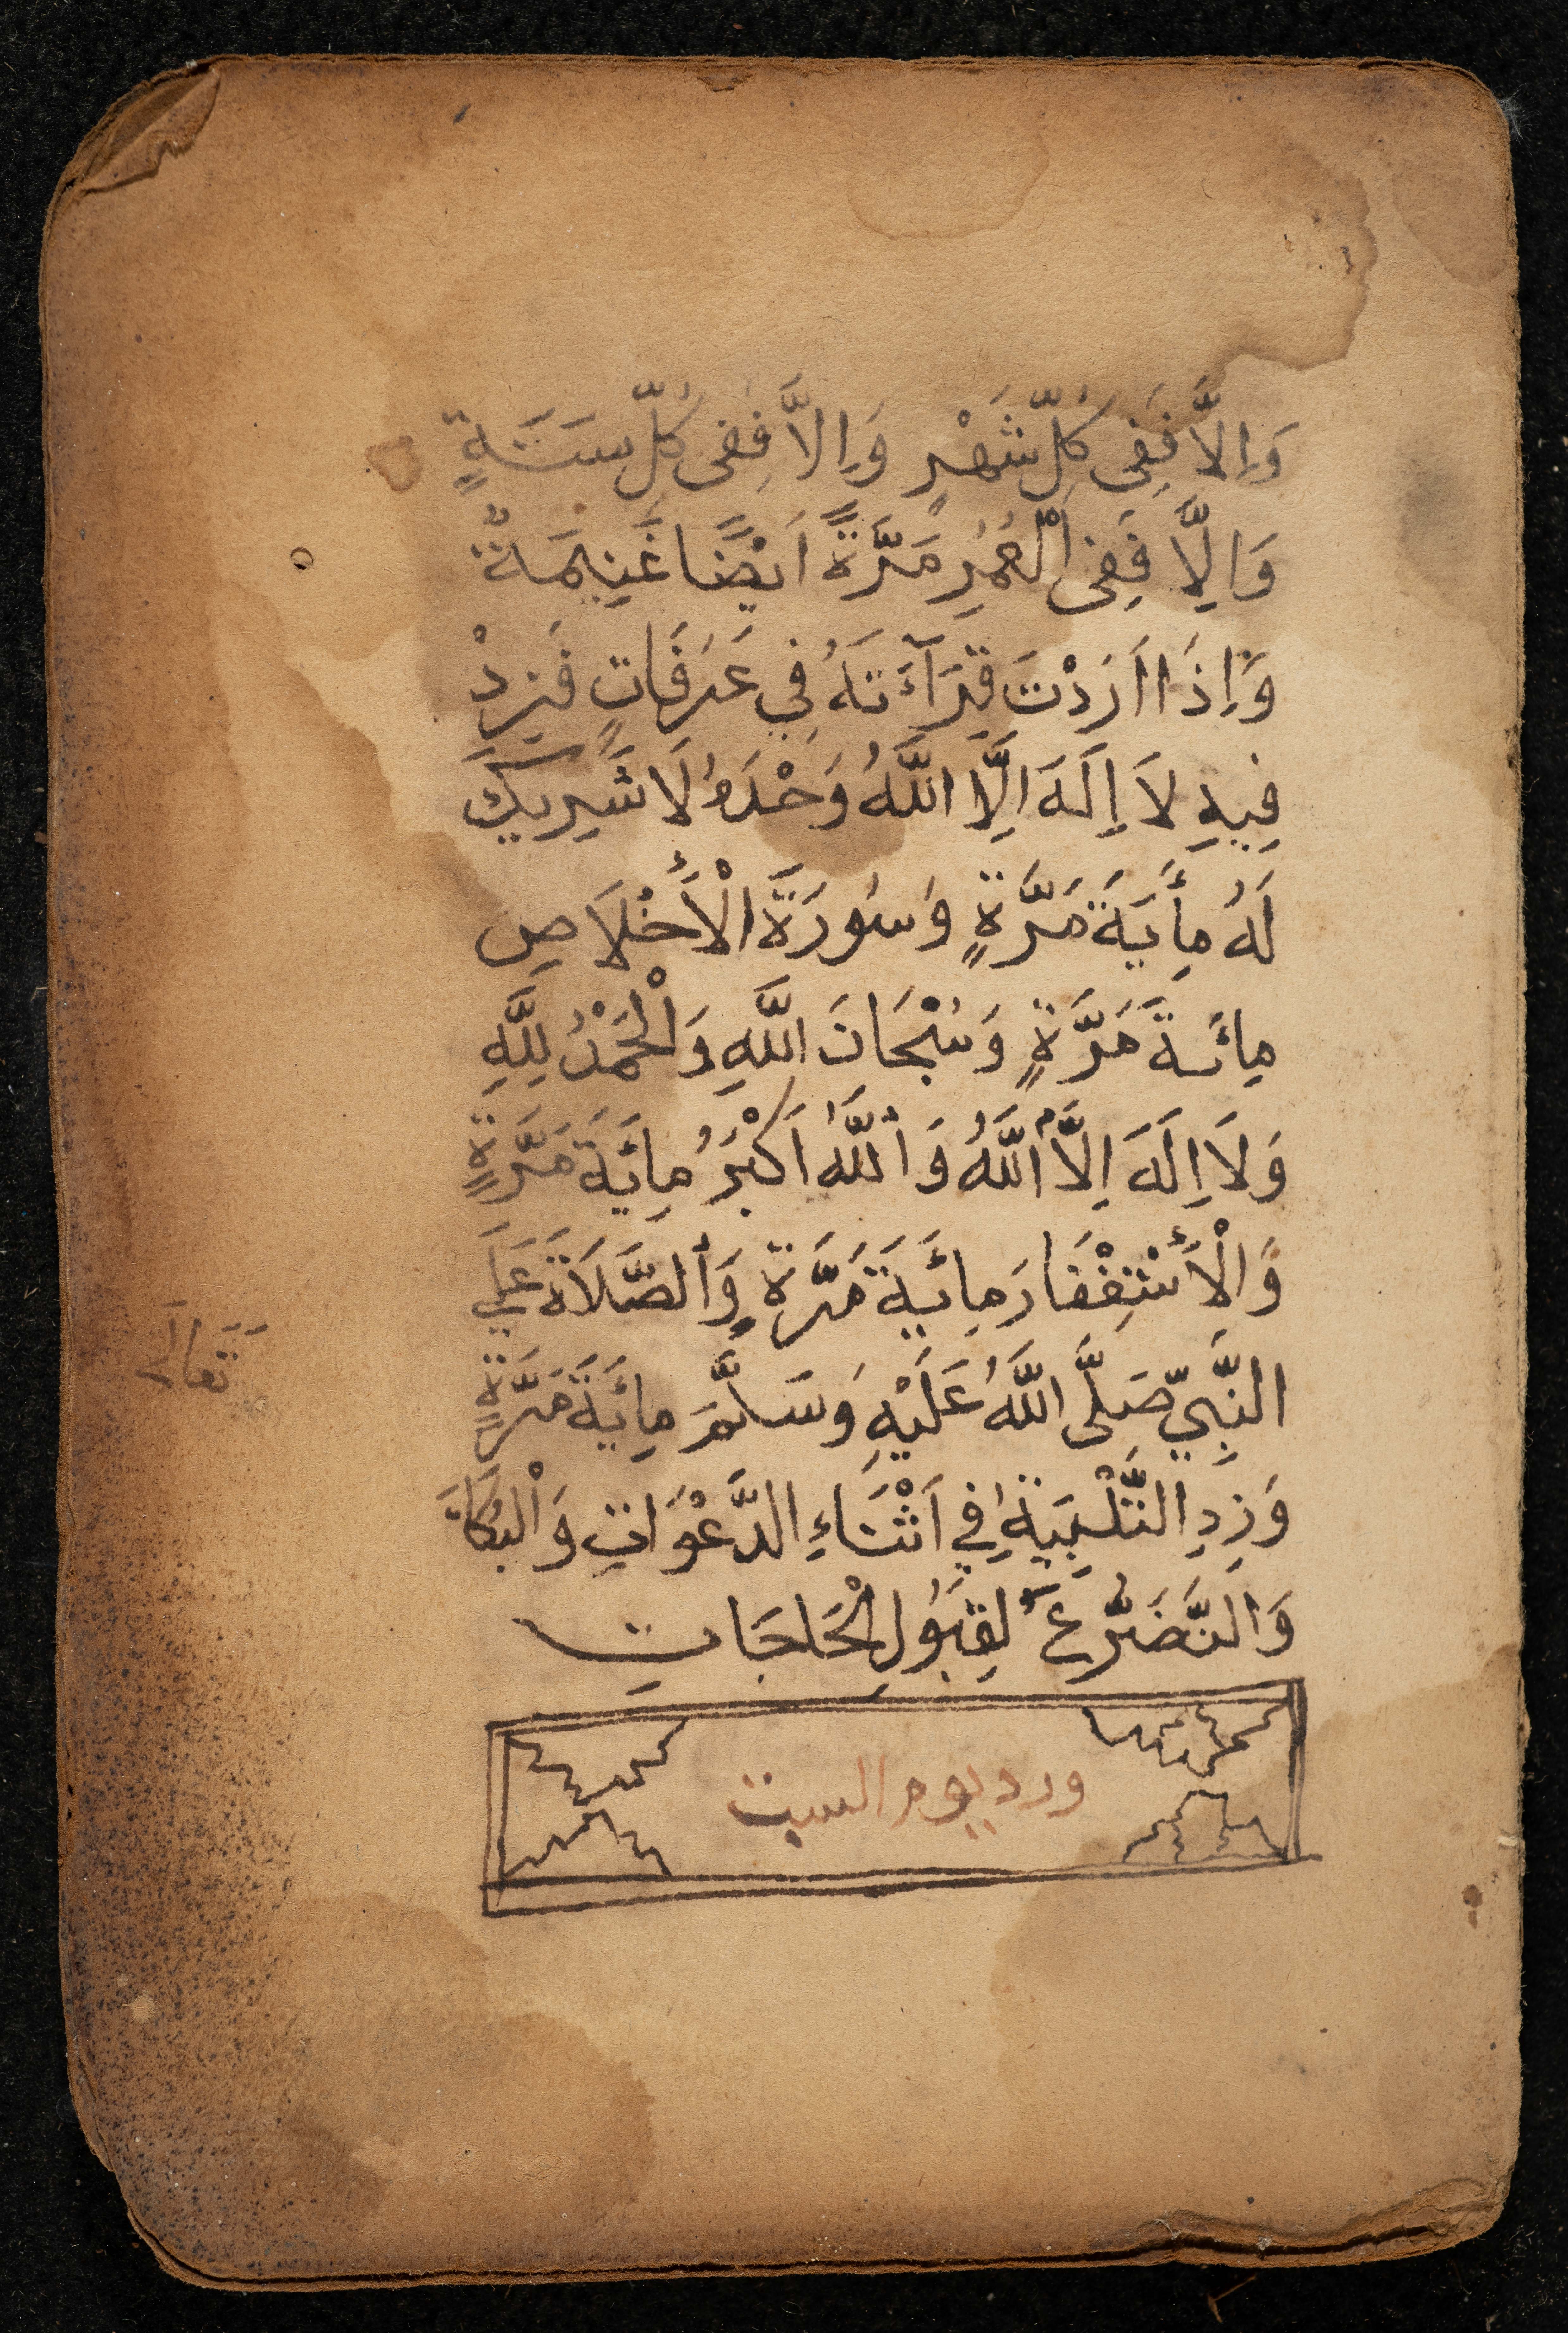 وَاِلاَّ فَفِى كُلِّ شَهْرٍ وَاِلاَّ فَفِى كُلِّ سَنَةٍ
وَاِلَّا فَفِى الْعُمُرِ مَرَّةً اَيْضًا غَنِيمَةٌ
وَاِذَا اَرَدْتَ قِرَآءَتَهُ فِي عَرَفَاتٍ فَزِدْ
فِيهِ لاَ إِلَهَ اِلَّا اللَّهُ وَحْدَهُ لَا شَرِيكَ
لَهُ مِأَيَةَ مَرَّةٍ وَسُورَةَ الْأَخْلَاصِ
مِائَةَ مَرَّةٍ وَسُبْحَانَ اللَّهِ وَالْحَمْدُ لِلَّهِ
وَلَا اِلَهَ اِلاَّ اللَّهُ وَاللَّهُ اَكْبَرُ مِائَيَةَ مَرَّةٍ
وَالْأَسْتِغْفَارَ مِائَيَةَ مَرَّةٍ وَالصَّلَاةَ عَلَي
النَّبِيِّ صَلَّى اللَّهُ عَلَيْهِ وَسَلَّمَ مِائَيَةَ مَرَّةٍ
وَزِدِ التَّلْبِيَةِ فِي اَثْنَاءِ الدَّعْوَاتِ وَالْبُكَاءَ
وَالتَّضَرُّعَ لِقَبُولِ الْحَاجَاتِ
ورد يوم السبت
تَعَالَى